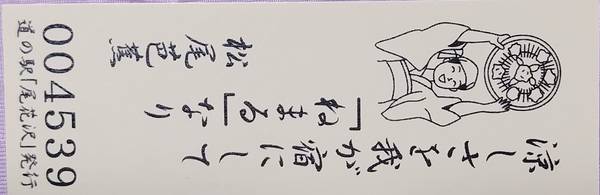 涼しさを我が宿にして
「ねまる」なり
松尾芭蕉
004539
道の駅「尾花沢」発行